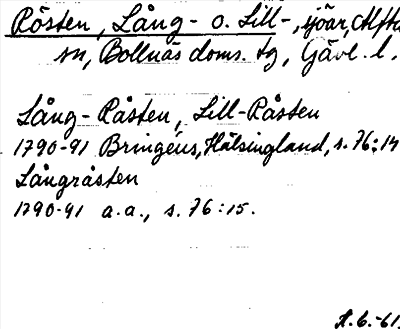 Rösten, Lång- o. Lill-, sjöar, Alfta
sn, Bollnäs doms. tg, Gävl. l.
Lång-Råsten, Lill-Råsten
1790-91 Bringéus, Hälsingland, s. 76:14
Långråsten
1790-91 a.a., s. 76:15.
6.-61.